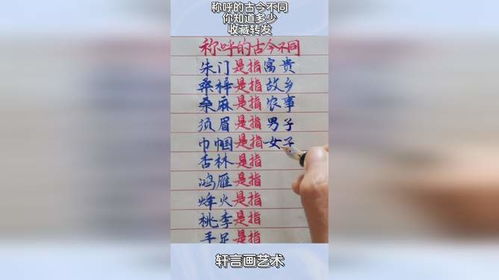 称呼的古今不同
你知道多少
收藏转发
称呼的古今不同
朱门是指富贵
桑梓是指故乡
桑麻是指农事
须眉是指男子
巾帼是指女子
杏林是指
鸿雁是指
烽火是指
桃李是指
手足是指
轩言画艺术